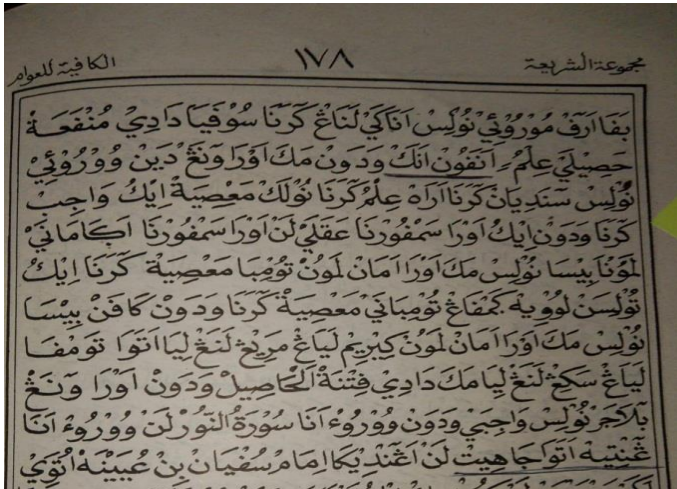 مجموعة الشريعة ١٧٨ الكافية للعوام
بقا ارف موروئي نوليس اناكي لناڠ كرنا سوفيا دادي منفعة
حصيلي علم أتقون انك ودون مك اورا ونڠ دين ووروئي
نوليس سنديان كرنا اراه علم كرنا نولك معصية ايك واجب
كرنا ودون ايك اورا سمفورنا عقلي لن اورا سمفورنا اكاماني
لمونا بيسا نوليس مك اورا امان لمون تومبا معصية كرنا ايك
توليسن لوويه كمفاڠ تومباني معصية كرنا ودون كافن بيسا
نوليس مك اورا امان لمون كيريم لياڠ مريڠ لنڠ ليا اتوا تومفا
لياڠ سكڠ لنڠ ليا مك دادي فتنة الحاصيل ودون اورا ونڠ
بلاجر نوليس واجبي ودون ووروء انا سورة النور لن ووروء انا
اتوا جاهيت لن اڠنديكا امام سفيان بن عيينه